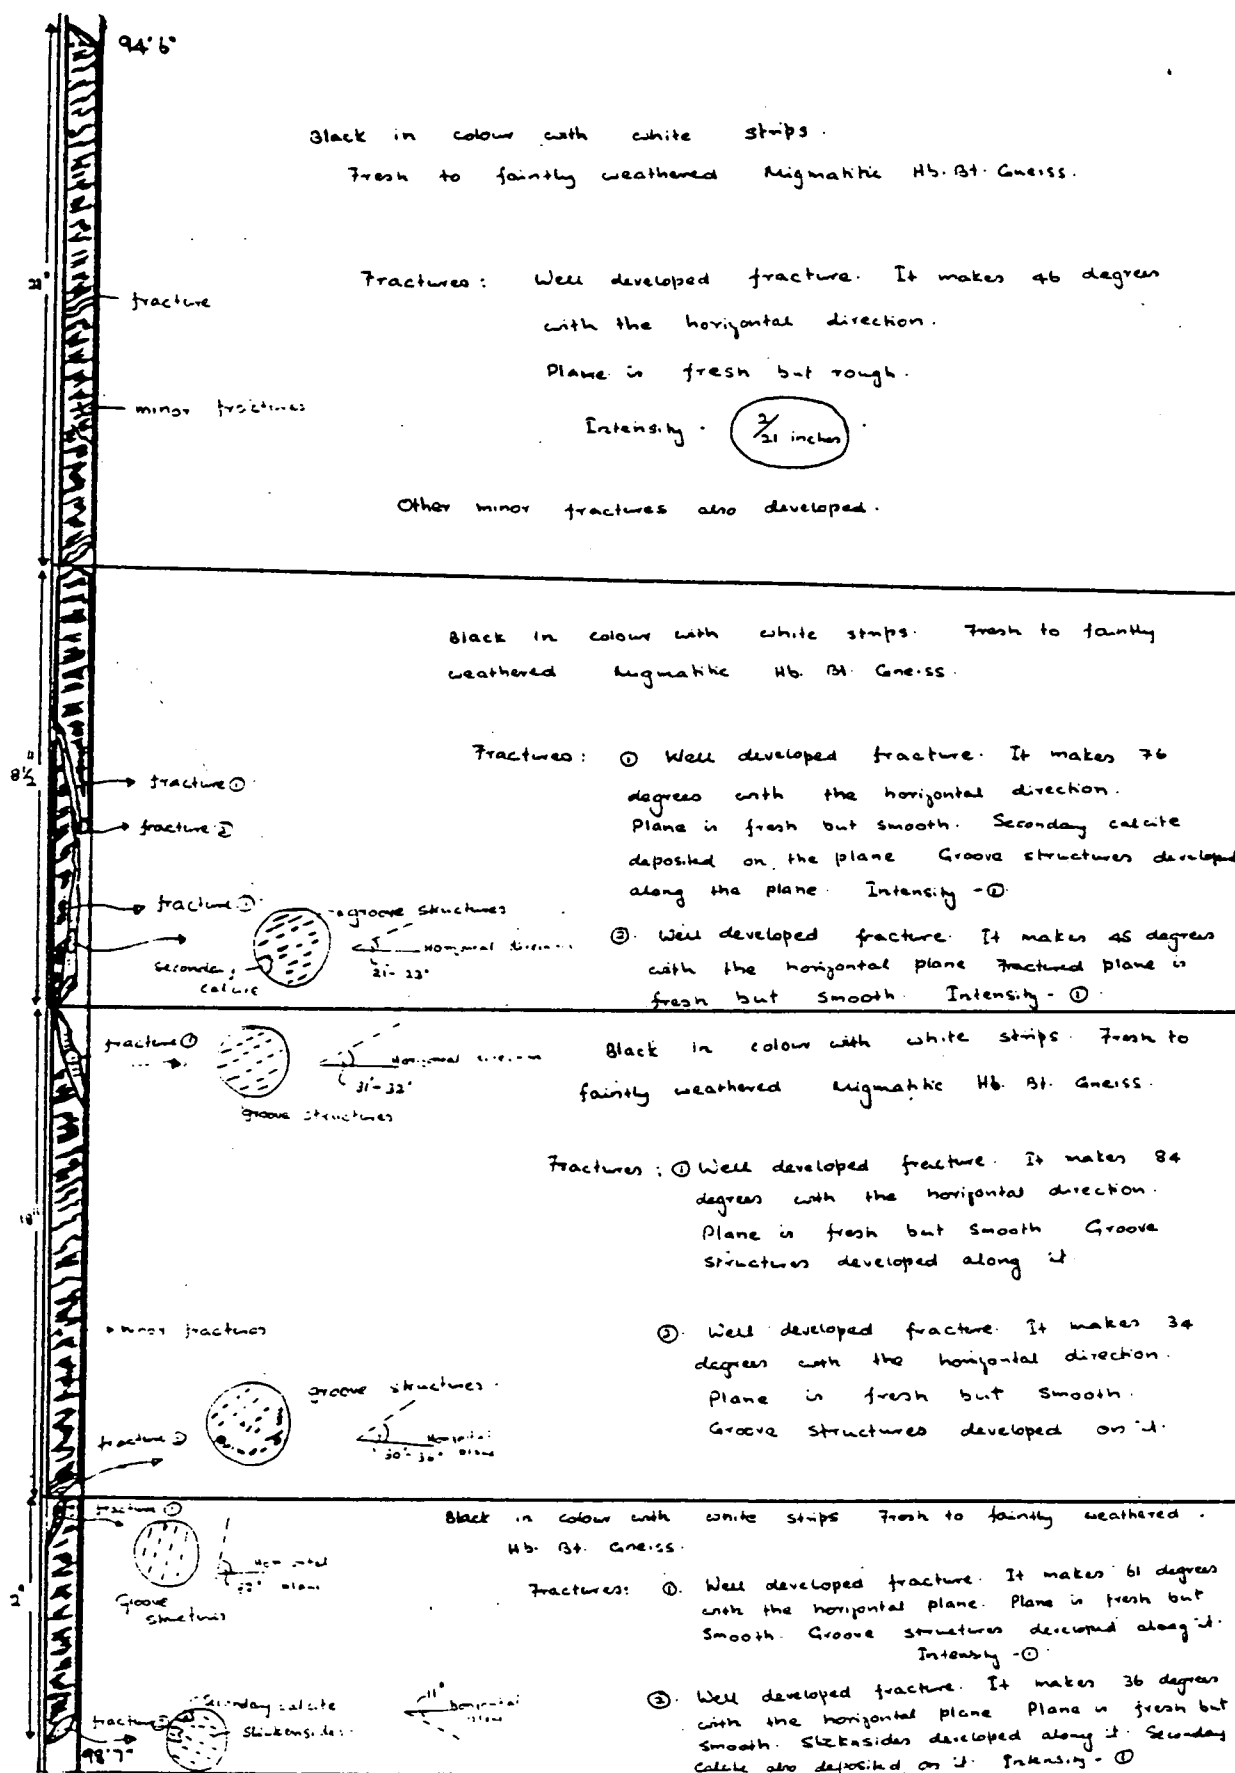 94'6"
Black in colour with white strips.
Fresh to faintly weathered Migmatitic Hb. Bt. Gneiss.
Fractures: Well developed fracture. It makes 46 degrees
with the horizontal direction.
fracture
Plane is fresh but rough.
minor fractures
Intensity. 2/21 inches
Other minor fractures also developed.
Black in colour with white strips. Fresh to faintly
weathered Migmatitic Hb. Bt. Gneiss.
8½"
Fractures: ① Well developed fracture. It makes 76
degrees with the horizontal direction.
Plane is fresh but smooth. Seconday calcite
deposited on the plane Groove structures developed
along the plane. Intensity -①
fracture ①
fracture ②
fracture ①
groove structures
seconday
calcite
21-23°
② Well developed fracture. It makes 45 degrees
with the horizontal plane Fractured plane is
fresh but smooth. Intensity - ①
fracture ①
31°-32°
groove structures
Black in colour with white strips. Fresh to
faintly weathered Migmatitic Hb. Bt. Gneiss.
18"
Fractures: ① Well developed fracture. It makes 84
degrees with the horizontal direction.
Plane is fresh but smooth Groove
structures developed along it
minor fractures
② Well developed fracture. It makes 34
degrees with the horizontal direction.
Plane is fresh but smooth.
Groove structures developed on it.
groove structures.
fracture ②
Horizontal
plane
fracture ①
Groove
structures
Horizontal
plane
Black in colour with white strips Fresh to faintly weathered.
Hb. Bt. Gneiss.
Fractures: ① Well developed fracture. It makes 61 degrees
with the horizontal plane. Plane is fresh but
smooth. Groove structures developed along it.
Intensity -①
② Well developed fracture. It makes 36 degrees
with the horizontal plane Plane is fresh but
smooth. Slicknsides developed along it. Seconday
calcite also deposited on it. Intensity - ①
Seconday calcite
Slickensides
fracture ②
11°
horizontal
plane
98'7"